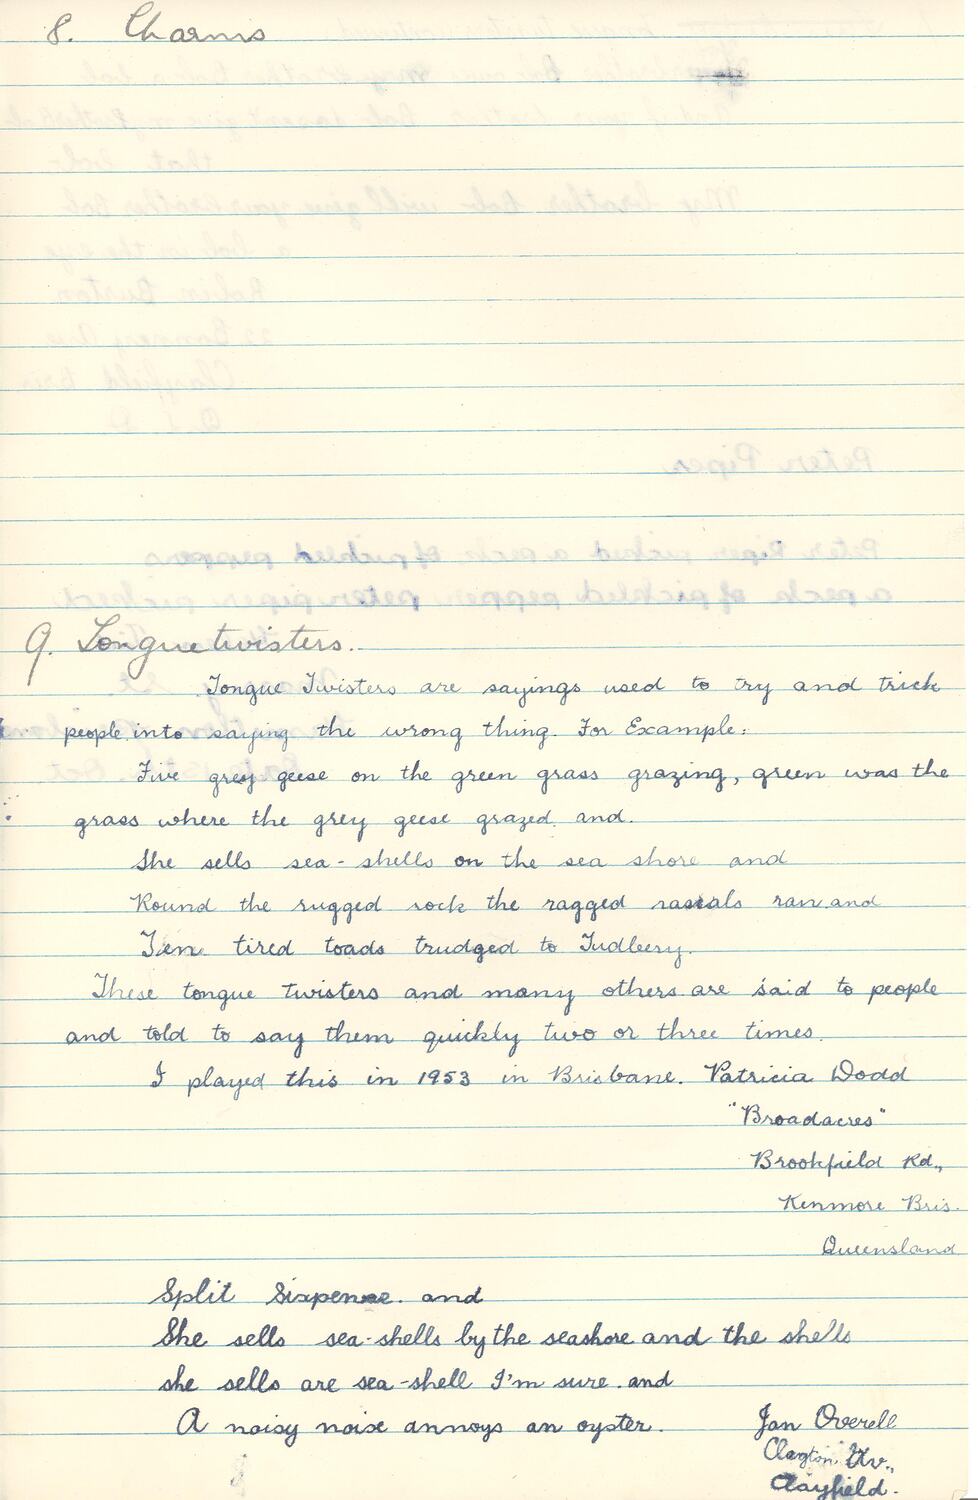 8. Charms
9. Tonguetwisters.
Tongue Twisters are sayings used to try and trick
people into saying the wrong thing. For Example:
Five grey geese on the green grass grazing, green was the
grass where the grey geese grazed. and.
She sells sea-shells on the sea shore and
Round the rugged rock the ragged rascals ran. and
Ten tired toads trudged to Tudbery.
These tongue twisters and many others are said to people
and told to say them quickly two or three times.
I played this in 1953 in Brisbane. Patricia Dodd
"Broadacres"
Brookfield Rd.,
Kenmore Bris.
Queensland
Split Sixpence. and
She sells sea-shells by the seashore and the shells
she sells are sea-shell I'm sure. and
A noisy noise annoys an oyster. Jan Overell
Av.,
Clayfield.